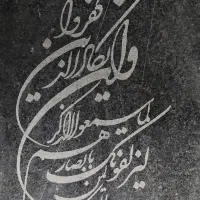 وإن يكاد الذين كفروا
ليزلقونك بأبصارهم
لما سمعوا الذكر